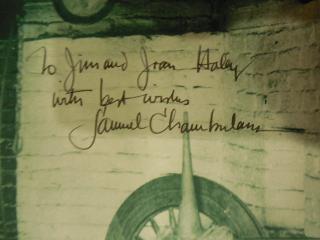 To Jim and Joan Haley
with best wishes
Samuel Chamberlain